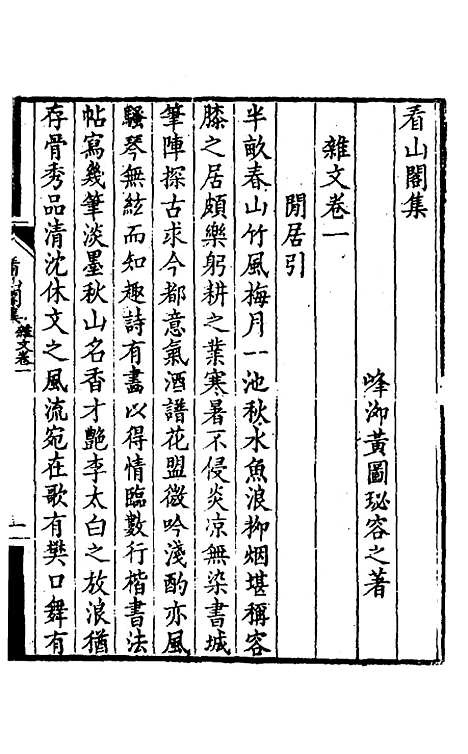 看山閣集
峰泖黃圖珌容之著
雜文卷一
閒居引
半畝春山竹風梅月一池秋水魚浪抑烟堪稱容
膝之居頗樂躬耕之業寒暑不侵炎凉無染書城
筆陣探古求今都意氣酒譜花盟微吟淺酌亦風
騷琴無絃而知趣詩有畫以得情臨數行楷書法
帖寫幾筆淡墨秋山名香才艷李太白之放浪猶
存骨秀品清沈休文之風流宛在歌有樊口舞有
看山閣集
雜文卷一
一